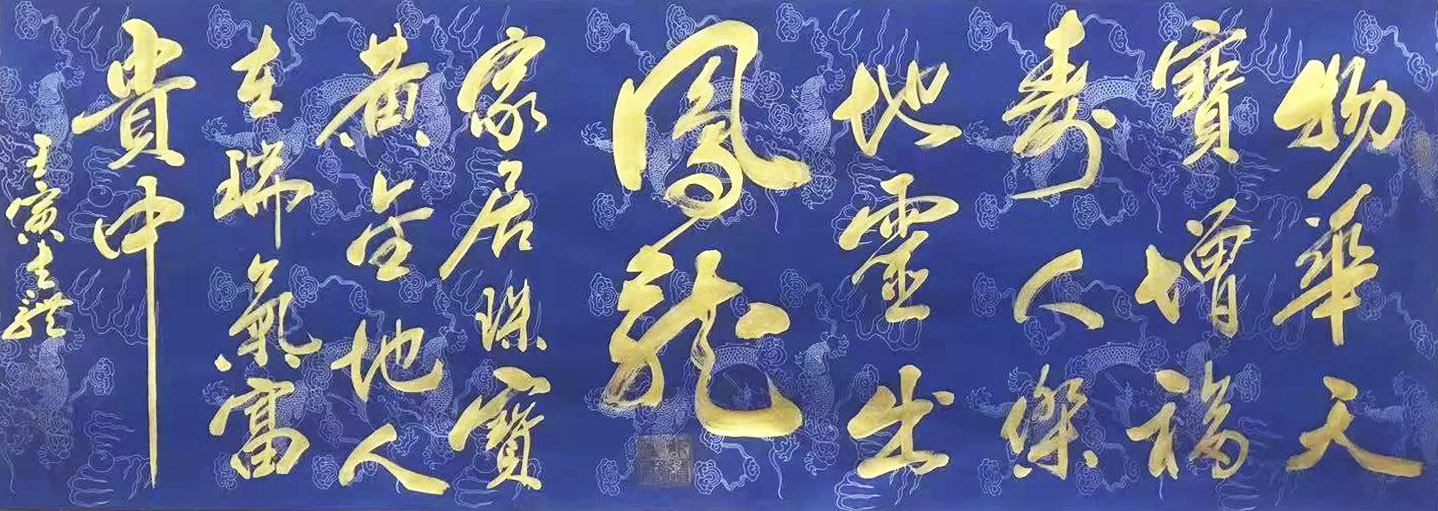 物華天
寶增福
寿人傑
地靈出
鳳龍
家居珠寶
黄金地人
在瑞氣富
貴中
壬寅志强